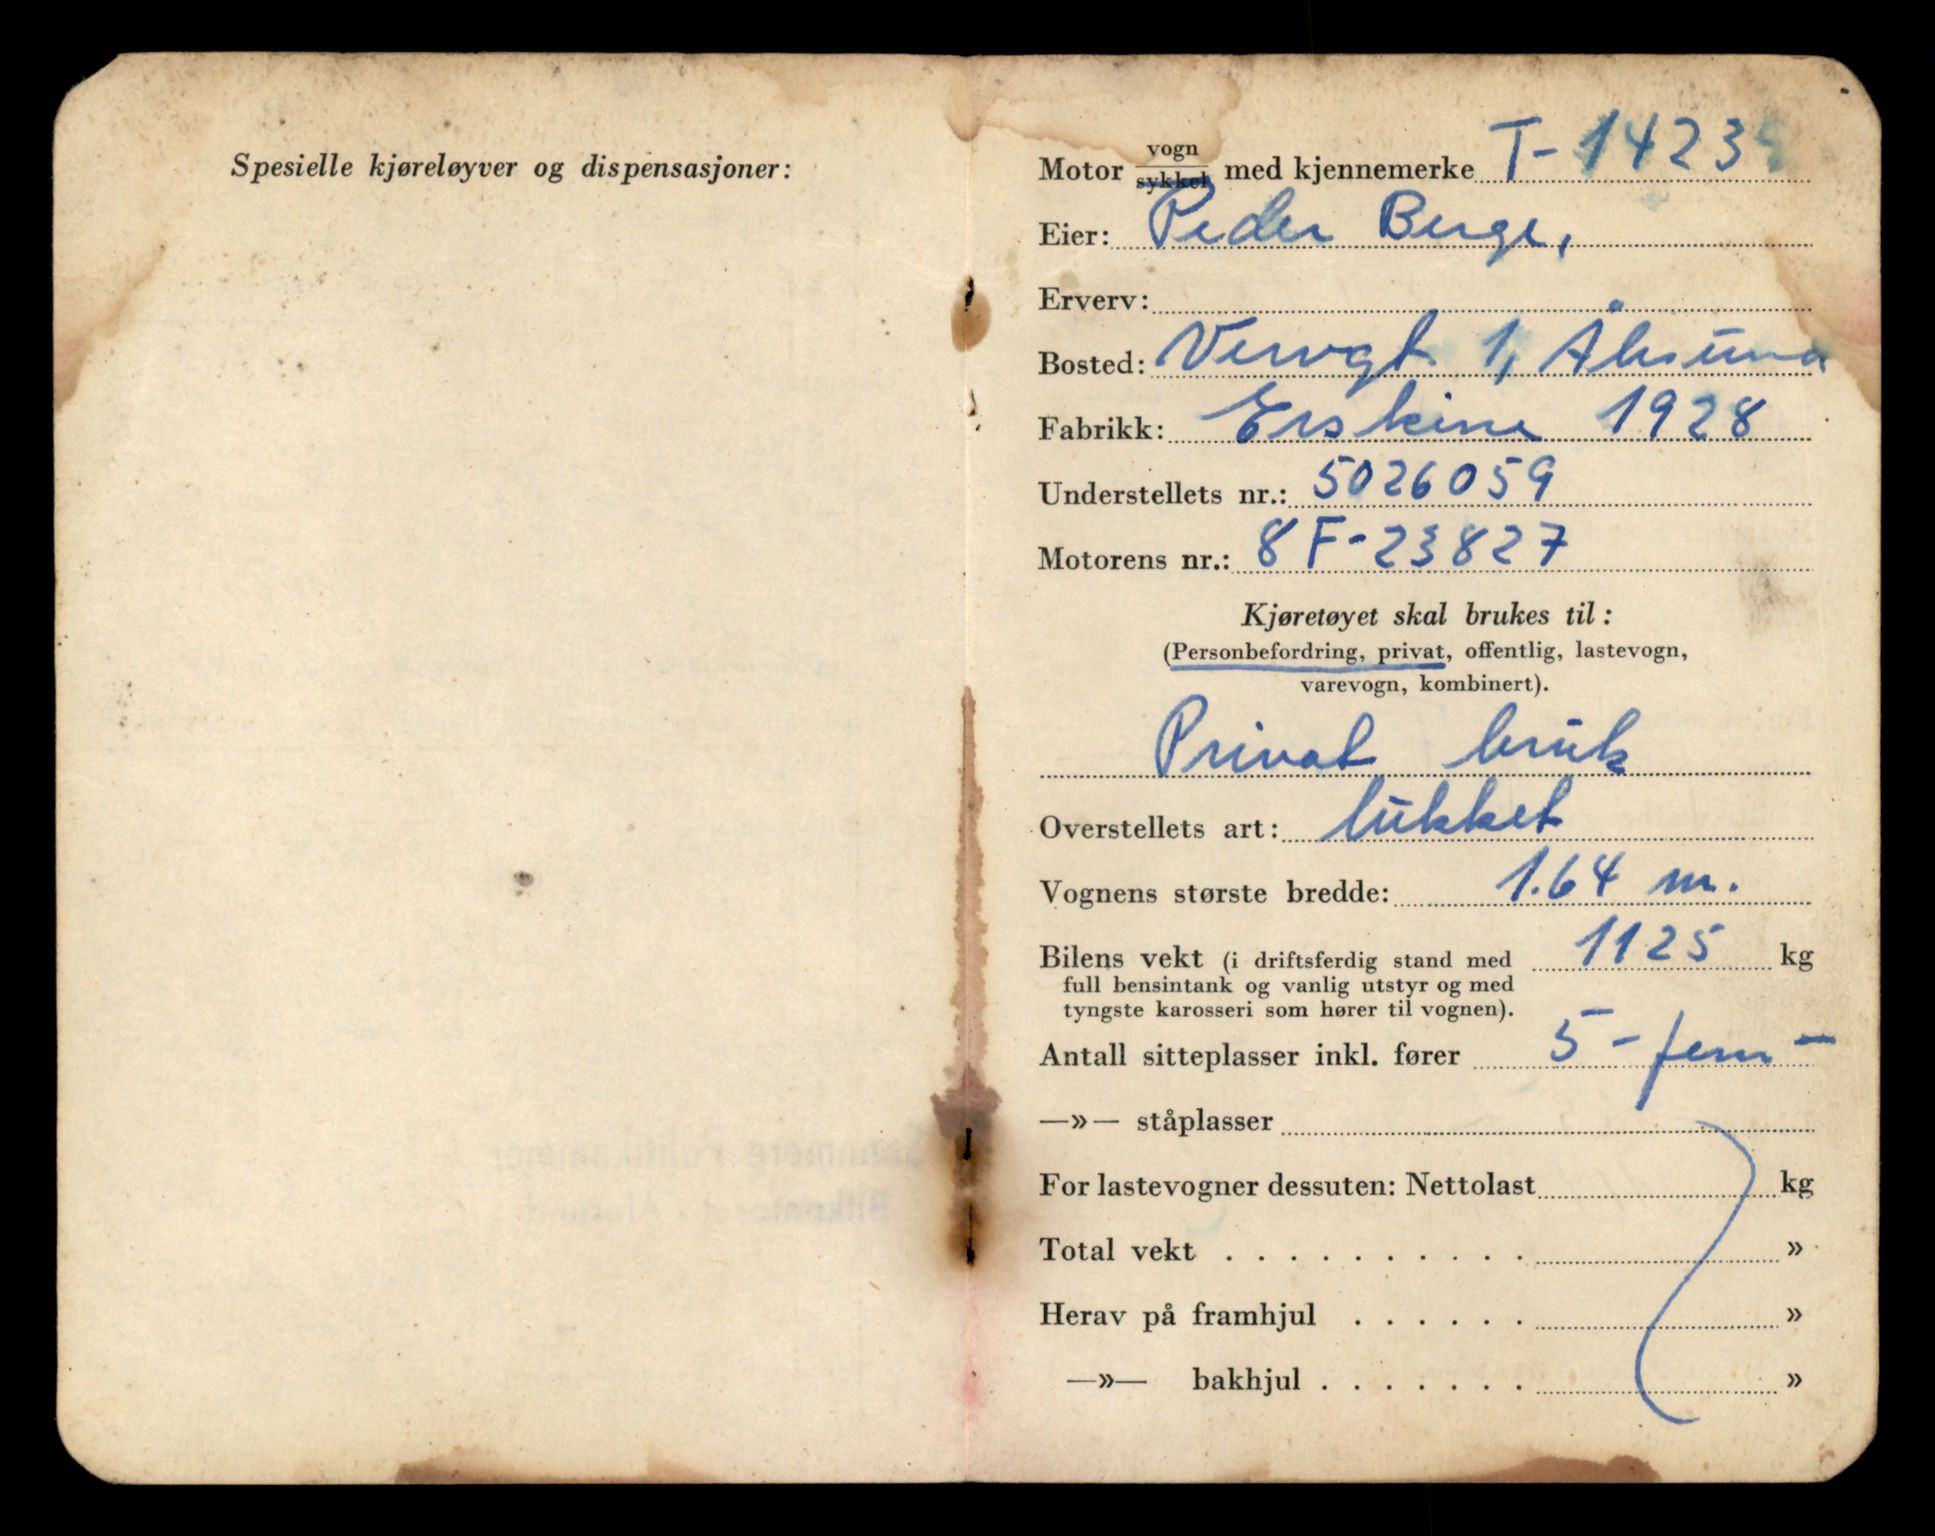 Spesielle kjøreløyver og dispensasjoner:
Motor vogn sykkel med kjennemerke T-14235
Eier: Peder Berge,
Erverv:
Bosted: Vervgt. 1, Ålesund
Fabrikk: Erskine 1928
Understellets nr.: 5026059
Motorens nr.: 8F-23827
Kjøretøyet skal brukes til:
(Personbefordring, privat, offentlig, lastevogn,
varevogn, kombinert).
Privat bruk
Overstellets art: lukket
Vognens største bredde: 1.64 m.
Bilens vekt (i driftsferdig stand med 1125 kg
full bensintank og vanlig utstyr og med
tyngste karosseri som hører til vognen).
Antall sitteplasser inkl. fører 5 - fem -
—»— ståplasser
For lastevogner dessuten: Nettolast kg
Total vekt . . . . . . . . . . »
Herav på framhjul . . . . . . »
—»— bakhjul . . . . . . . »